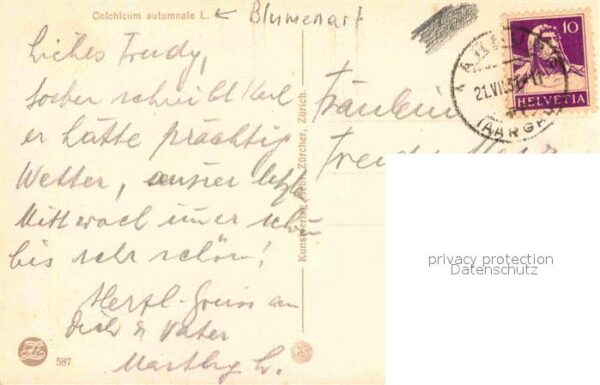 Colchicum autumnale L. Blumenart
Liebes Trudy,
soeber schreibt Karl
er hätte prächtig
Wetter, ausser letzte
Mittwoch immer schön
bis sehr schön!
Herzl. Gruss an
Dich & Vater
Fräulein
Trudy
Kunstverlag Gebr. Zürcher, Zürich.
587
10
HELVETIA
21.VII.
(AARGAU)
privacy protection
Datenschutz